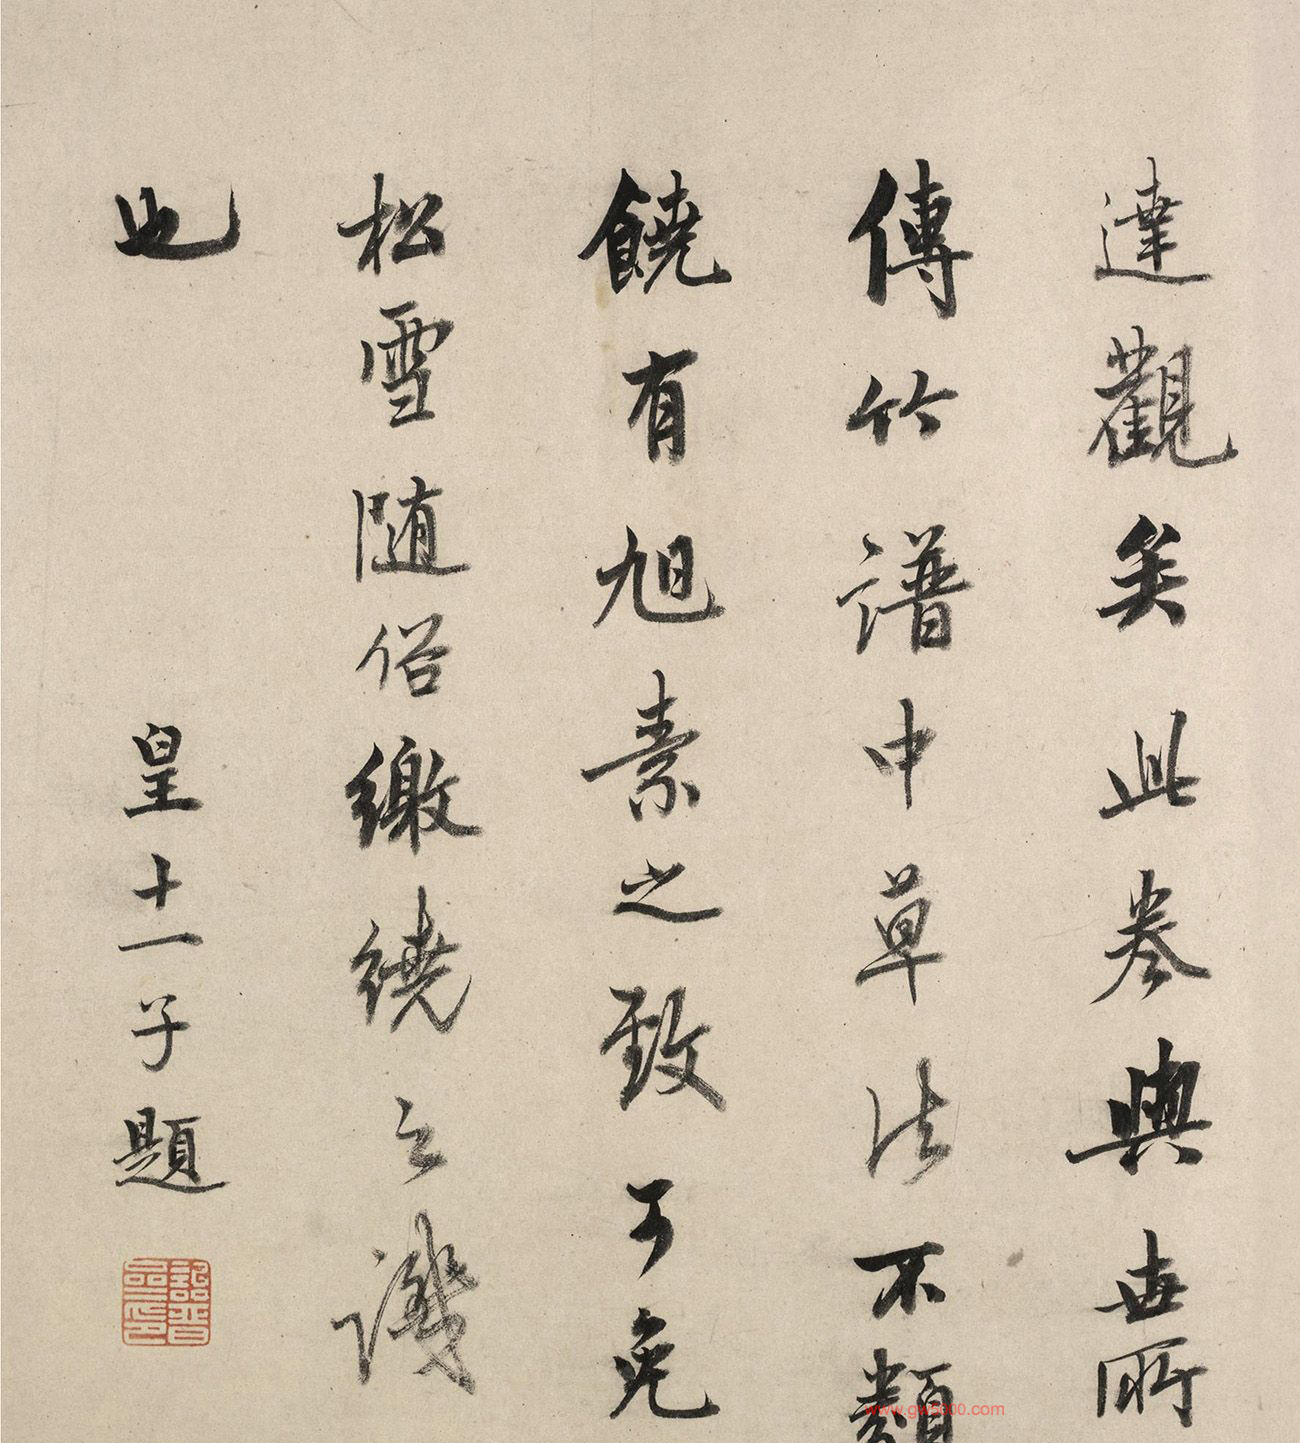 達觀矣此卷與世所
傳竹譜中草法不類
饒有旭素之致可免
松雪隨俗繳繞之譏
也
皇十一子題
www.gw5000.com